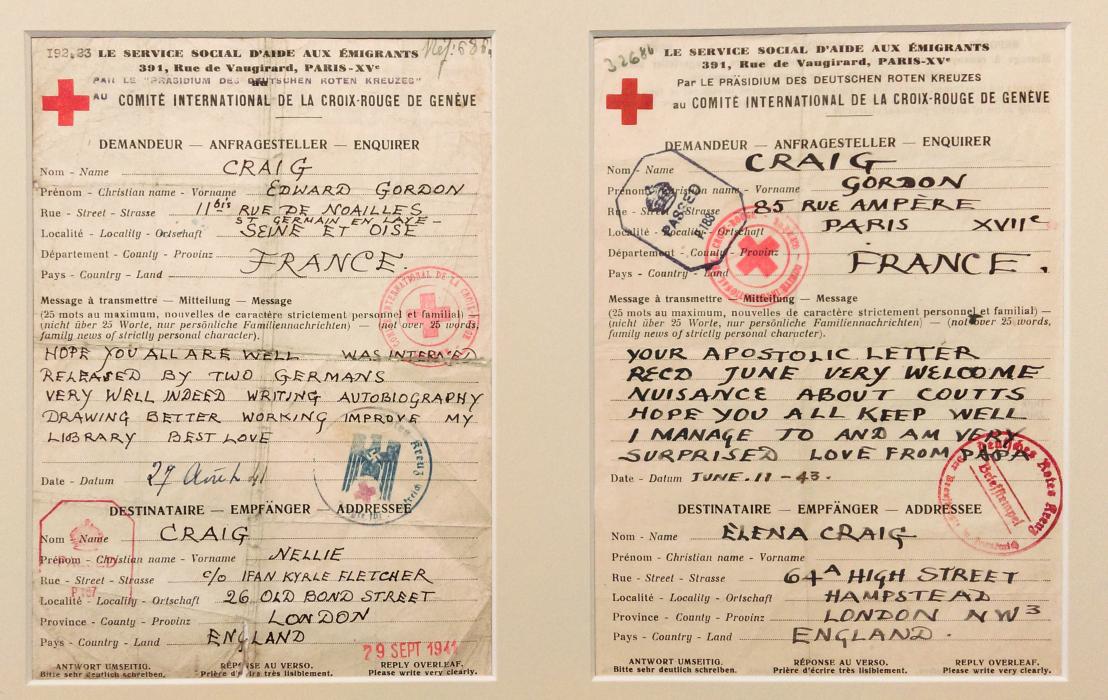 192,23
LE SERVICE SOCIAL D'AIDE AUX ÉMIGRANTS
391, Rue de Vaugirard, PARIS-XVe
PAR LE "PRÄSIDIUM DES DEUTSCHEN ROTEN KREUZES"
AU COMITÉ INTERNATIONAL DE LA CROIX-ROUGE DE GENÈVE
DEMANDEUR — ANFRAGESTELLER — ENQUIRER
Nom - Name CRAIG
Prénom - Christian name - Vorname EDWARD GORDON
Rue - Street - Strasse 11bis RUE DE NOAILLES
ST GERMAIN EN LAYE -
Localité - Locality - Ortschaft SEINE ET OISE
Département - County - Provinz
Pays - Country - Land FRANCE.
Message à transmettre — Mitteilung - Message
(25 mots au maximum, nouvelles de caractère strictement personnel et familial) —
(nicht über 25 Worte, nur persönliche Familiennachrichten) — (not over 25 words,
family news of strictly personal character).
HOPE YOU ALL ARE WELL WAS INTERNED
RELEASED BY TWO GERMANS
VERY WELL INDEED WRITING AUTOBIOGRAPHY
DRAWING BETTER WORKING IMPROVE MY
LIBRARY BEST LOVE
Date - Datum 27 41
DESTINATAIRE — EMPFÄNGER — ADDRESSEE
Nom - Name CRAIG
Prénom - Christian name - Vorname NELLIE
Rue - Street - Strasse c/o IFAN KYRLE FLETCHER
Localité - Locality - Ortschaft 26 OLD BOND STREET
Province - County - Provinz LONDON
Pays - Country - Land ENGLAND
P.187
29 SEPT 1941
ANTWORT UMSEITIG. RÉPONSE AU VERSO. REPLY OVERLEAF.
Bitte sehr deutlich schreiben. Prière d'écrire très lisiblement. Please write very clearly.
32686
LE SERVICE SOCIAL D'AIDE AUX ÉMIGRANTS
391, Rue de Vaugirard, PARIS-XVe
Par LE PRÄSIDIUM DES DEUTSCHEN ROTEN KREUZES
au COMITÉ INTERNATIONAL DE LA CROIX-ROUGE DE GENÈVE
DEMANDEUR — ANFRAGESTELLER — ENQUIRER
Nom - Name CRAIG
Prénom - Christian name - Vorname GORDON
Rue - Street - Strasse 85 RUE AMPÈRE
Localité - Locality - Ortschaft PARIS XVIIe
Département - County - Provinz
Pays - Country - Land FRANCE.
PASSED
P.188
Message à transmettre — Mitteilung - Message
(25 mots au maximum, nouvelles de caractère strictement personnel et familial) —
(nicht über 25 Worte, nur persönliche Familiennachrichten) — (not over 25 words,
family news of strictly personal character).
YOUR APOSTOLIC LETTER
RECD JUNE VERY WELCOME
NUISANCE ABOUT COUTTS
HOPE YOU ALL KEEP WELL
I MANAGE TO AND AM VERY
SURPRISED LOVE FROM PAPA
Date - Datum JUNE.11-43.
Deutsches Rotes Kreuz
Briefstempel
DESTINATAIRE — EMPFÄNGER — ADDRESSEE
Nom - Name ELENA CRAIG
Prénom - Christian name - Vorname
Rue - Street - Strasse 64A HIGH STREET
Localité - Locality - Ortschaft HAMPSTEAD
Province - County - Provinz LONDON NW3
Pays - Country - Land ENGLAND.
ANTWORT UMSEITIG. RÉPONSE AU VERSO. REPLY OVERLEAF.
Bitte sehr deutlich schreiben. Prière d'écrire très lisiblement. Please write very clearly.